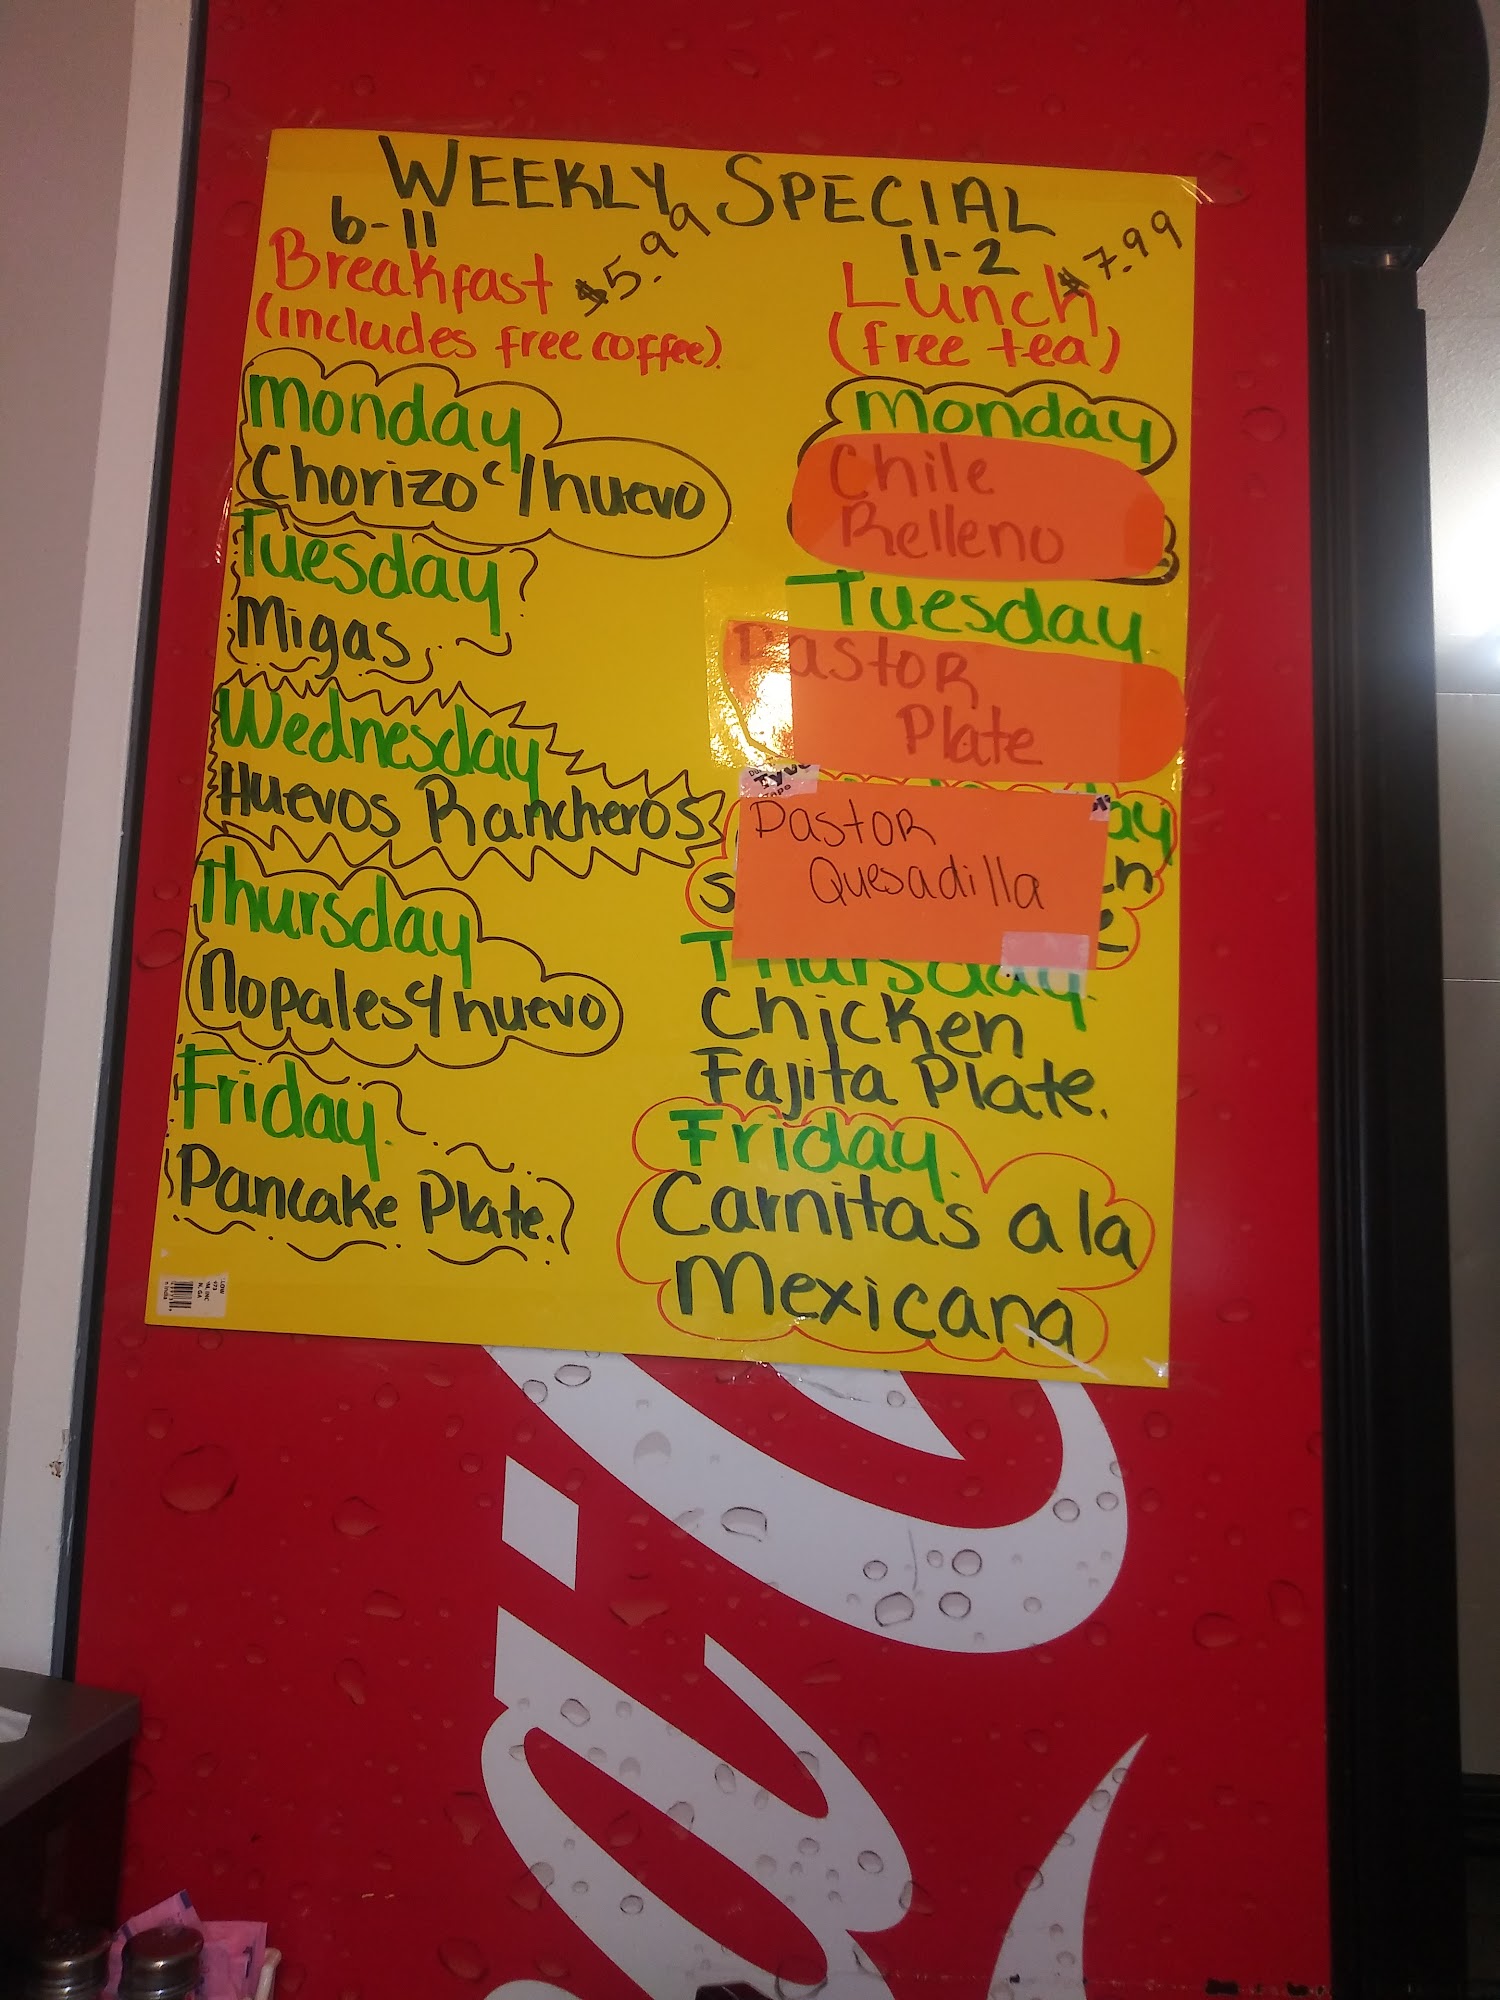 WEEKLY SPECIAL
6-11
Breakfast $5.99
(includes free coffee).
Monday
Chorizo c/huevo
Tuesday
Migas
Wednesday
Huevos Rancheros
Thursday
Nopales c/huevo
Friday.
Pancake Plate.
11-2
Lunch $7.99
(free tea)
Monday
Chile
Relleno
Tuesday
Pastor
Plate
Pastor
Quesadilla
Thursday.
Chicken
Fajita Plate.
Friday.
Carnitas a la
Mexicana